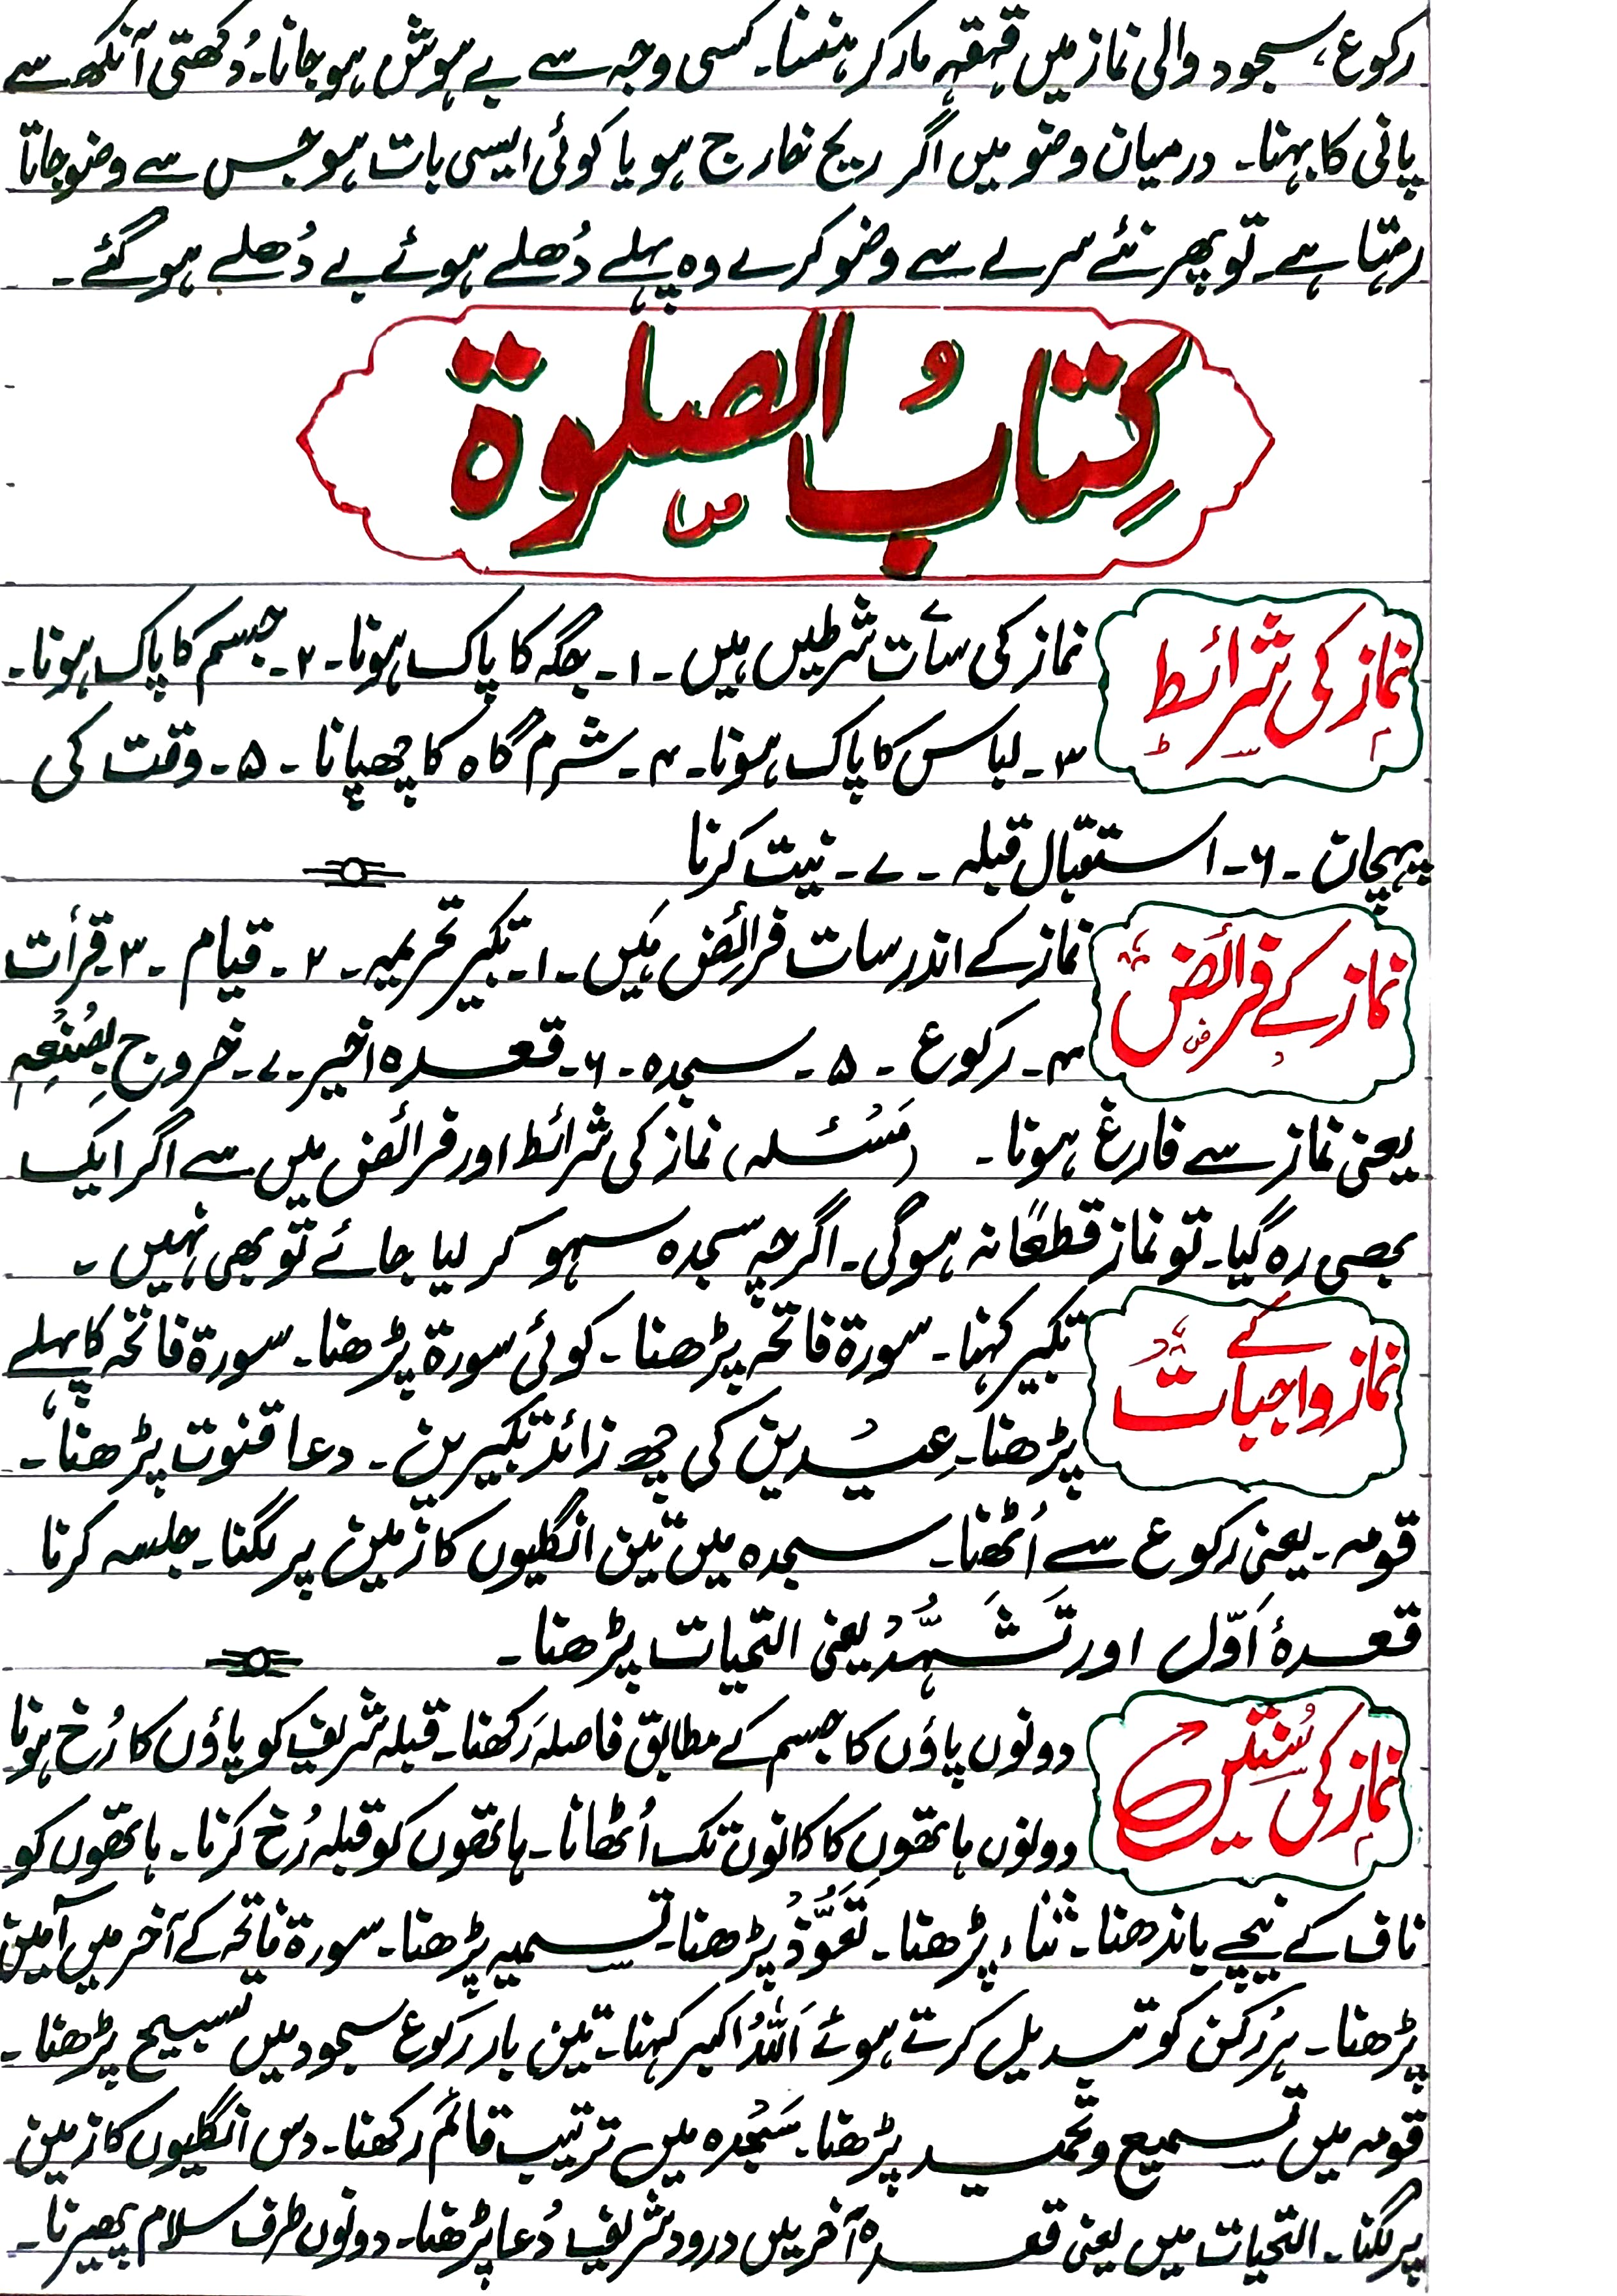 رکوع، سجود والی نماز میں قہقہہ مار کر ہنسنا۔ کسی وجہ سے بے ہوش ہو جانا۔ دُکھتی آنکھ سے
پانی کا بہنا۔ درمیان وضو میں اگر ریح خارج ہو یا کوئی ایسی بات ہو جس سے وضو جاتا
رہتا ہے۔ تو پھر نئے سرے سے وضو کرے وہ پہلے دُھلے ہوئے بے دُھلے ہو گئے۔
کِتابُ الصلوۃ
نماز کی شرائط
نماز کی سات شرطیں ہیں۔ ۱۔ جگہ کا پاک ہونا۔ ۲۔ جسم کا پاک ہونا۔
۳۔ لباس کا پاک ہونا۔ ۴۔ شرم گاہ کا چھپانا۔ ۵۔ وقت کی
پہچان۔ ۶۔ استقبال قبلہ۔ ۷۔ نیت کرنا
نماز کے فرائض
نماز کے اندر سات فرائض ہیں۔ ۱۔ تکبیر تحریمہ۔ ۲۔ قیام۔ ۳۔ قرأت
۴۔ رکوع۔ ۵۔ سجدہ۔ ۶۔ قعدہ اخیر۔ ۷۔ خروج بِصُنْعِہٖ
یعنی نماز سے فارغ ہونا۔ (مَسْئلہ) نماز کی شرائط اور فرائض میں سے اگر ایک
بھی رہ گیا۔ تو نماز قطعًا نہ ہوگی۔ اگرچہ سجدہ سہو کر لیا جائے تو بھی نہیں۔
نماز کے واجبات
تکبیر کہنا۔ سورۃ فاتحہ پڑھنا۔ کوئی سورۃ پڑھنا۔ سورۃ فاتحہ کا پہلے
پڑھنا۔ عِیْدین کی چھ زائد تکبیریں۔ دعا قنوت پڑھنا۔
قومہ۔ یعنی رکوع سے اُٹھنا۔ سجدہ میں تین انگلیوں کا زمین پر لگنا۔ جلسہ کرنا
قعدۂ اَوّل اور تَشَہُّدْ یعنی التحیات پڑھنا۔
نماز کی سُنتیں
دونوں پاؤں کا جسم کے مطابق فاصلہ رَکھنا۔ قبلہ شریف کو پاؤں کا رُخ ہونا
دونوں ہاتھوں کا کانوں تک اُٹھانا۔ ہاتھوں کو قبلہ رُخ کرنا۔ ہاتھوں کو
ناف کے نیچے باندھنا۔ ثناء پڑھنا۔ تَعَوُّذْ پڑھنا۔ تسمیہ پڑھنا۔ سورۃ فاتحہ کے آخر میں آمین
پڑھنا۔ ہر رُکن کو تبدیل کرتے ہوئے اَللّٰہُ اکبر کہنا۔ تین بار رَکوع سجود میں تسبیح پڑھنا۔
قومہ میں تسمیع و تحمید پڑھنا۔ سَجْدہ میں ترتیب قائم رَکھنا۔ دس انگلیوں کا زمین
پر لگنا۔ التحیات میں یعنی قعدہ آخر میں درود شریف دُعا پڑھنا۔ دونوں طرف سلام پھیرنا۔